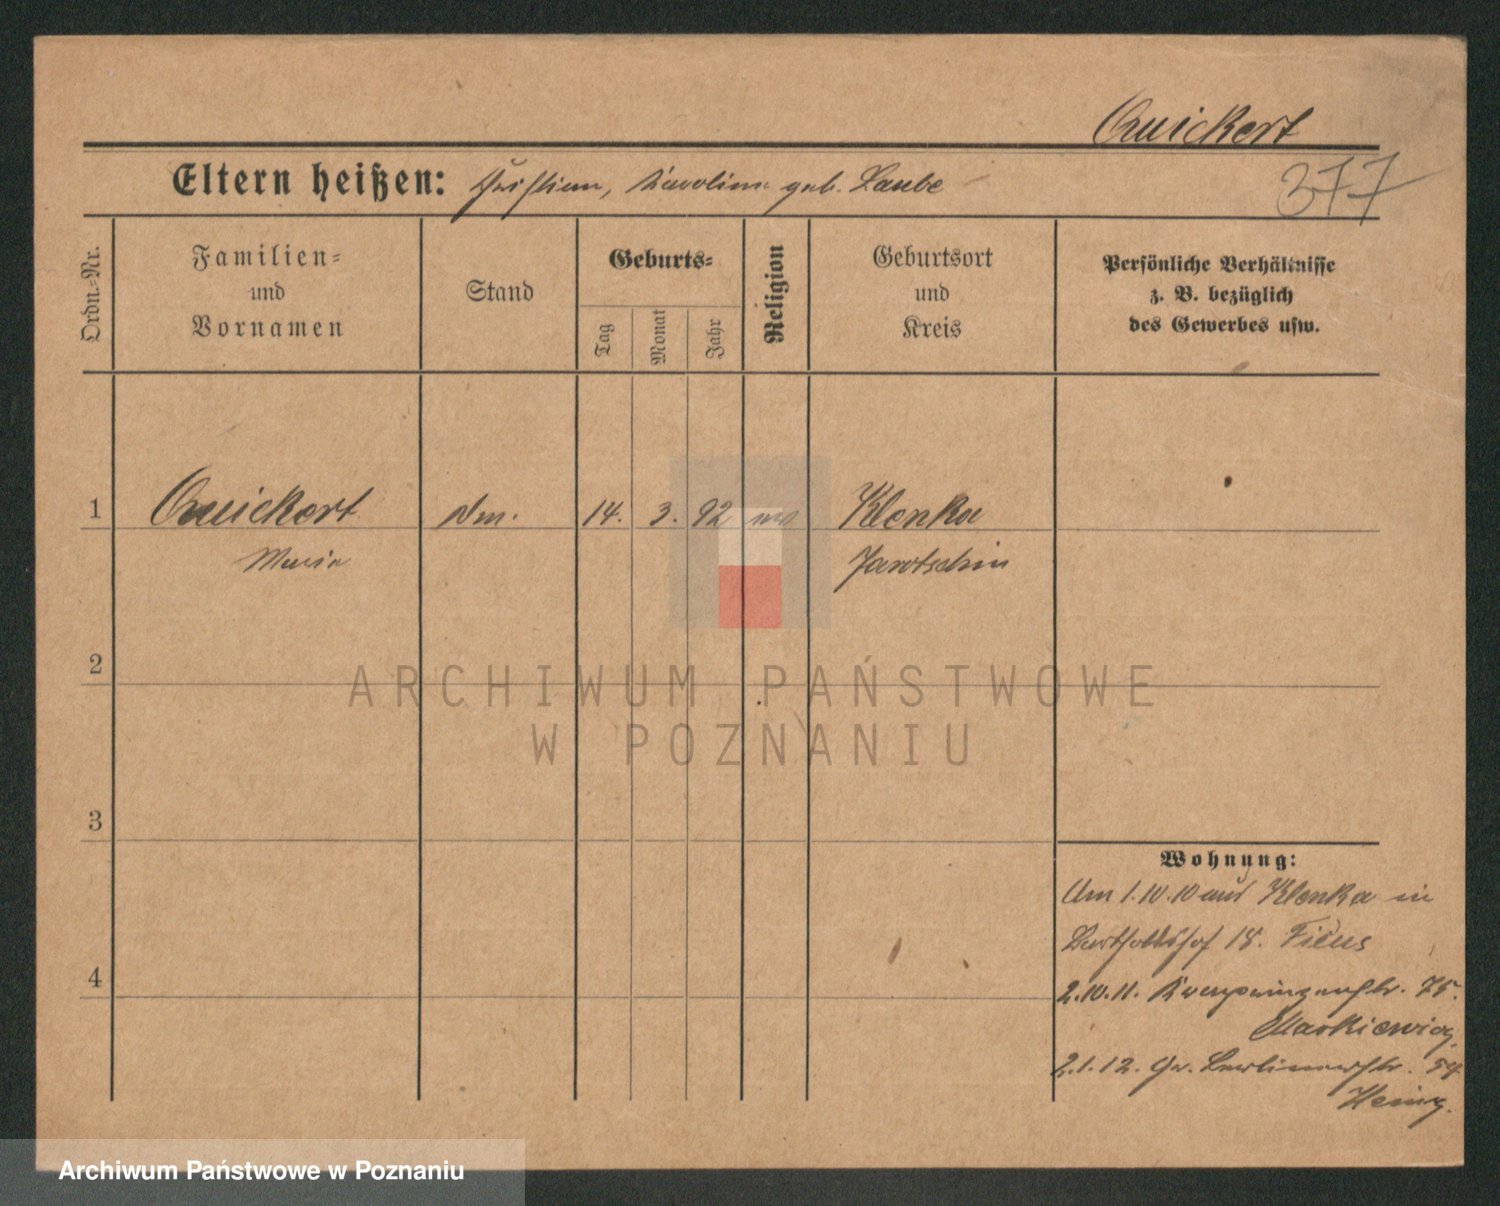 Quickert
377
Eltern heißen: Christian, Karoline geb. Laube
Ordn.-Nr.
Familien-
und
Vornamen
Stand
Geburts-
Tag
Monat
Jahr
Religion
Geburtsort
und
Kreis
Persönliche Verhältnisse
z. B. bezüglich
des Gewerbes usw.
1 Quickert 14. 3. 92 Klenka
Marie Jarotschin
2
3
4
ARCHIWUM PAŃSTWOWE
W POZNANIU
Wohnung:
Am 1.10.10 aus Klenka in
18.
2.10.11. 75.
Markiewicz
2.1.12. Gr. Berlinerstr. 54
Archiwum Państwowe w Poznaniu